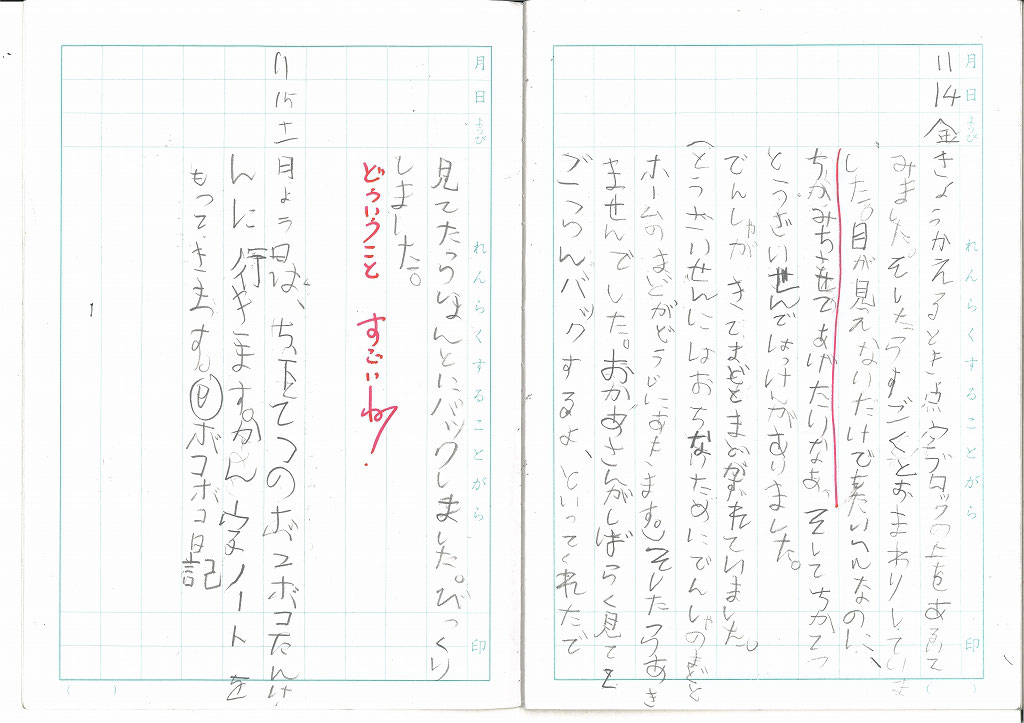 月日ようび れんらくすることがら 印
11 14 金 きょうかえるとき点字ブロックの上をあるいて
みました。そしたらすごくとおまわりしていま
した。目が見えないだけで大たいへんなのに、
ちかみちさせてあげたいなあ。そしてちかてつ
とうざいせんではっけんがありました。
でんしゃが きてまどとまどがずれていました。
(とうざいせんにはおちないためにでんしゃのまどと
ホームのまどがどうじにあきます。)そしたらあき
ませんでした。おかあさんがしばらく見てて
ごらんバックするよ、といってくれたので
月日ようび れんらくすることがら 印
見てたらほんとにバックしました。びっくり
しました。
どういうこと すごいね!
11 15 土 日よう日は、ち下てつのボコボコたんけ
んに行きます。かん字ノートを
もっていきます。日ボコボコ日記